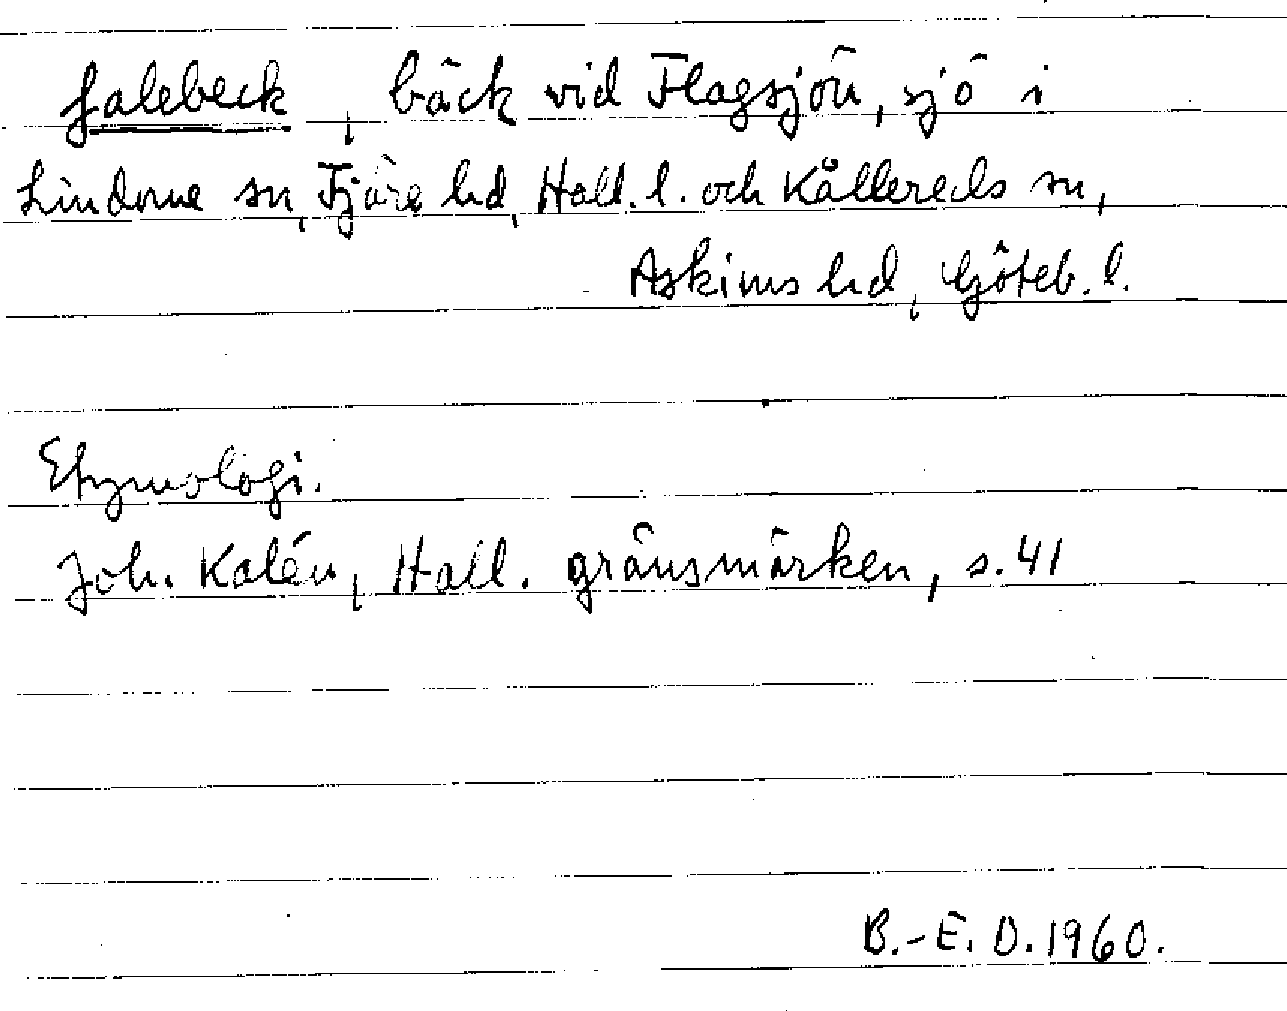 falebeck, bäck vid Flagsjön, sjö i
Lindome sn, Fjäre hd, Hall. l. och Kållereds sn,
Askims hd, Göteb. l.
Etymologi.
Joh. Kalén, Hall. gränsmärken, s. 41
B.-E. D. 1960.